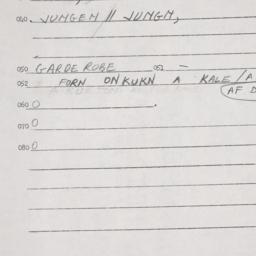 040. JUNGEN // JUNGN,
050 GARDEROBE 051 —
052 FORN ONKUKN A KALE / A
(AF D
060 O
070 O
080 O